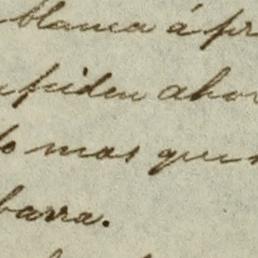 blanca á pr
piden ahor
o mas que
barra.